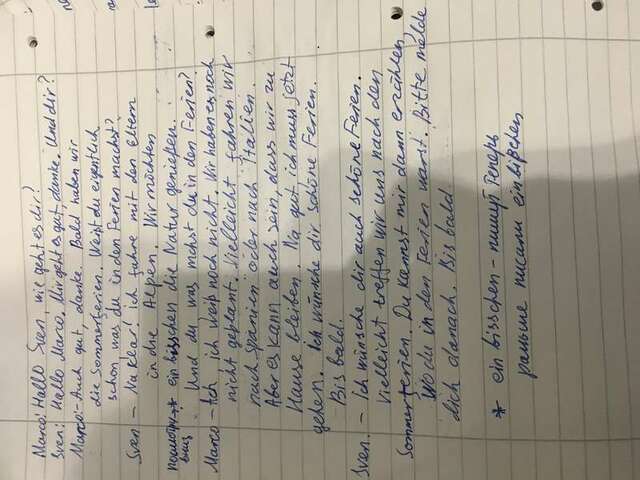 Marco: Hallo Sven, wie geht es dir?
Sven: Hallo Marco. Mir geht es gut, danke. Und dir?
Marco: - Auch gut, danke. Bald haben wir
die Sommerferien. Weißt du eigentlich
schon, was du in den Ferien machst?
Sven - Na klar! ich fahre mit den Eltern
in die Alpen. Wir möchten
посмотри * ein bisschen die Natur genießen.
вниз
Und du, was mchst du in den Ferien?
Marco - Ach, ich weiß noch nicht. Wir haben es noch
nicht geplant. Vielleicht fahren wir
nach Spanien oder nach Italien.
Aber es kann auch sein, dass wir zu
Hause bleiben. Na gut, ich muss jetzt
gehen. Ich wünsche dir schöne Ferien.
Bis bald.
Sven. - Ich wünsche dir auch schöne Ferien.
Vielleicht treffen wir uns nach den
Sommerferien. Du kannst mir dann erzählen,
wo du in den Ferien warst. Bitte melde
dich danach. Bis bald
* ein bisschen - пишут теперь
раньше писали ein bißchen